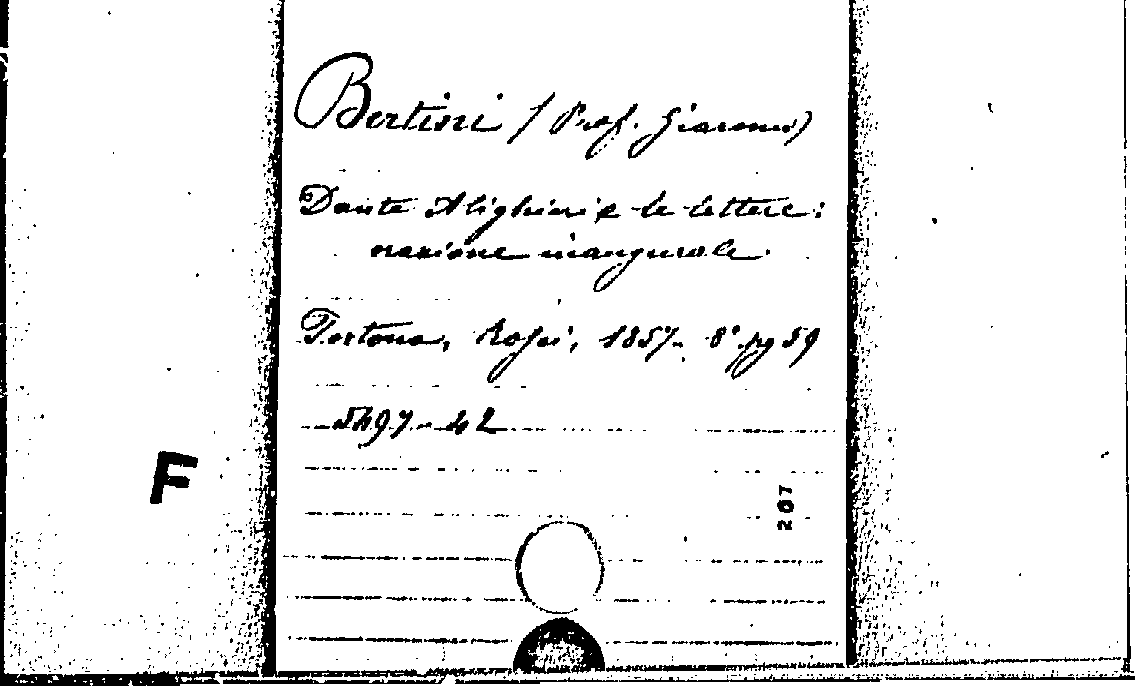 Bertini (Prof. Giacomo)
Dante Alighieri e le lettere:
orazione inaugurale
Tortona, Rossi, 1857. 8° pg 59
5497-42
F
207